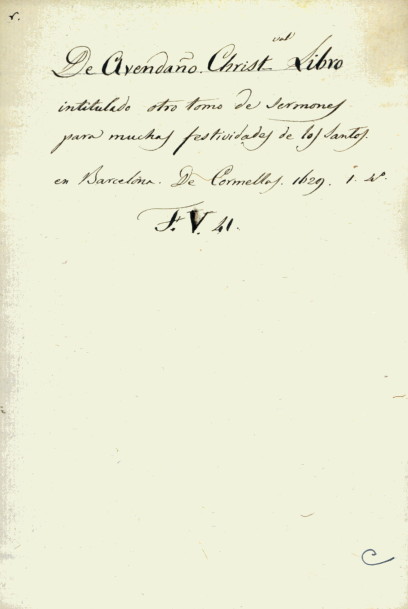 r.
De Avendaño. Christ val Libro
intitulado otro tomo de sermones
para muchas festividades de los santos.
en Barcelona. De Cormellas. 1629. 1. 4º.
F. V. 41.
C